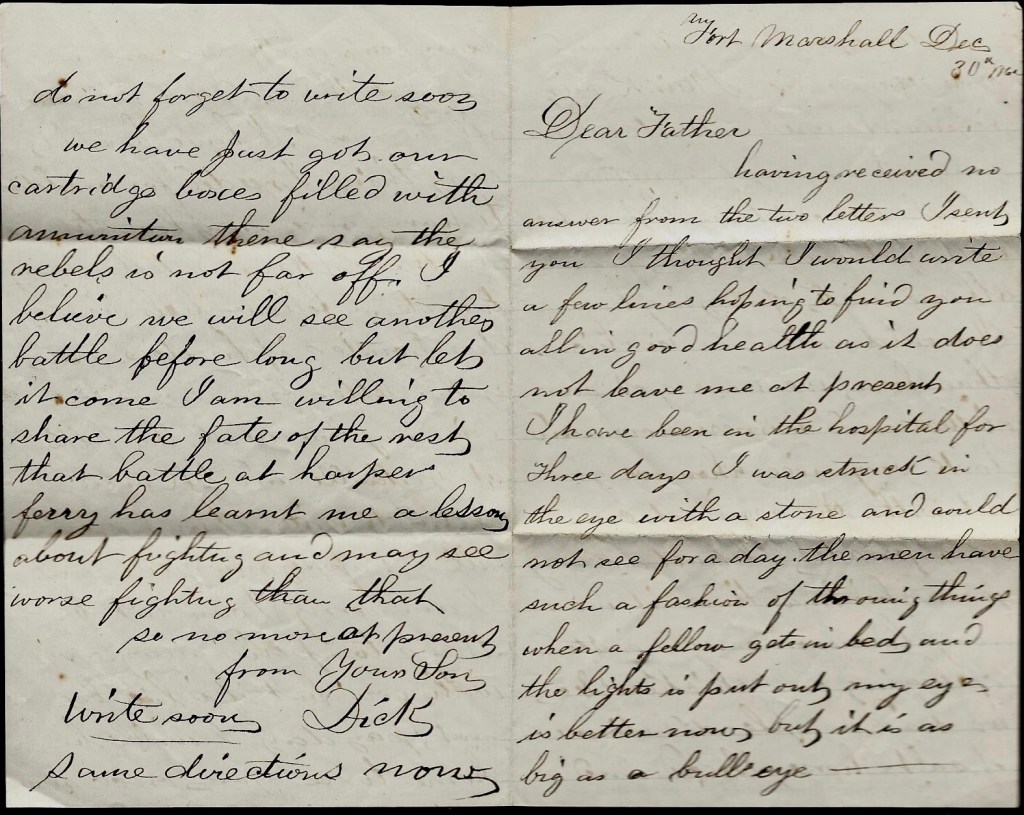 Fort Marshall Dec
30th 1862
Dear Father
having received no
answer from the two letters I sent
you I thought I would write
a few lines hoping to find you
all in good health as it does
not leave me at present
I have been in the hospital for
three days I was struck in
the eye with a stone and could
not see for a day. the men have
such a fashion of throwing things
when a fellow gets in bed and
the lights is put out my eye
is better now but it is as
big as a bulls eye —
do not forget to write soon
we have just got our
cartridge boxes filled with
ammunition there say the
rebels is not far off. I
believe we will see another
battle before long but let
it come I am willing to
share the fate of the rest
that battle at harper
ferry has learnt me a lesson
about fighting and may see
worse fighting than that
so no more at present
from Your Son
Write soon Dick
same directions now